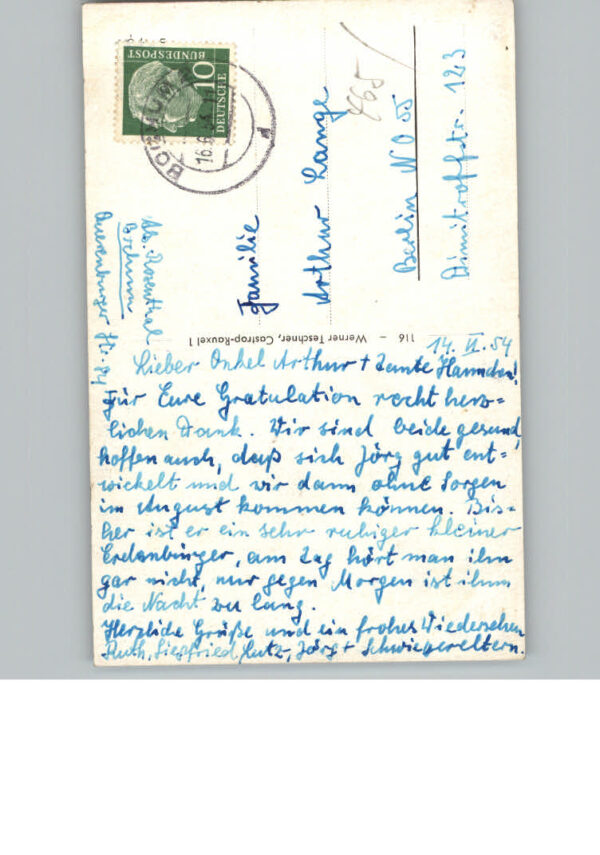 10
DEUTSCHE
BUNDESPOST
BOCHUM
16.6.54
d
465
Familie
Arthur Lange
Berlin NO 55
Dimitroffstr. 123
Abs. Rosenthal
Bochum
Querenburger Str. 94
116 – Werner Teschner, Castrop-Rauxel 1
14. VI. 54
Lieber Onkel Arthur + Tante Hannchen!
Für Eure Gratulation recht herz=
lichen Dank. Wir sind beide gesund,
hoffen auch, daß sich Jörg gut ent=
wickelt und wir dann ohne Sorgen
im August kommen können. Bis=
her ist er ein sehr ruhiger kleiner
Erdenbürger, am Tag hört man ihn
gar nicht, nur gegen Morgen ist ihm
die Nacht zu lang.
Herzliche Grüße und ein frohes Wiedersehen
Ruth, Siegfried, Lutz, Jörg + Schwiegereltern.